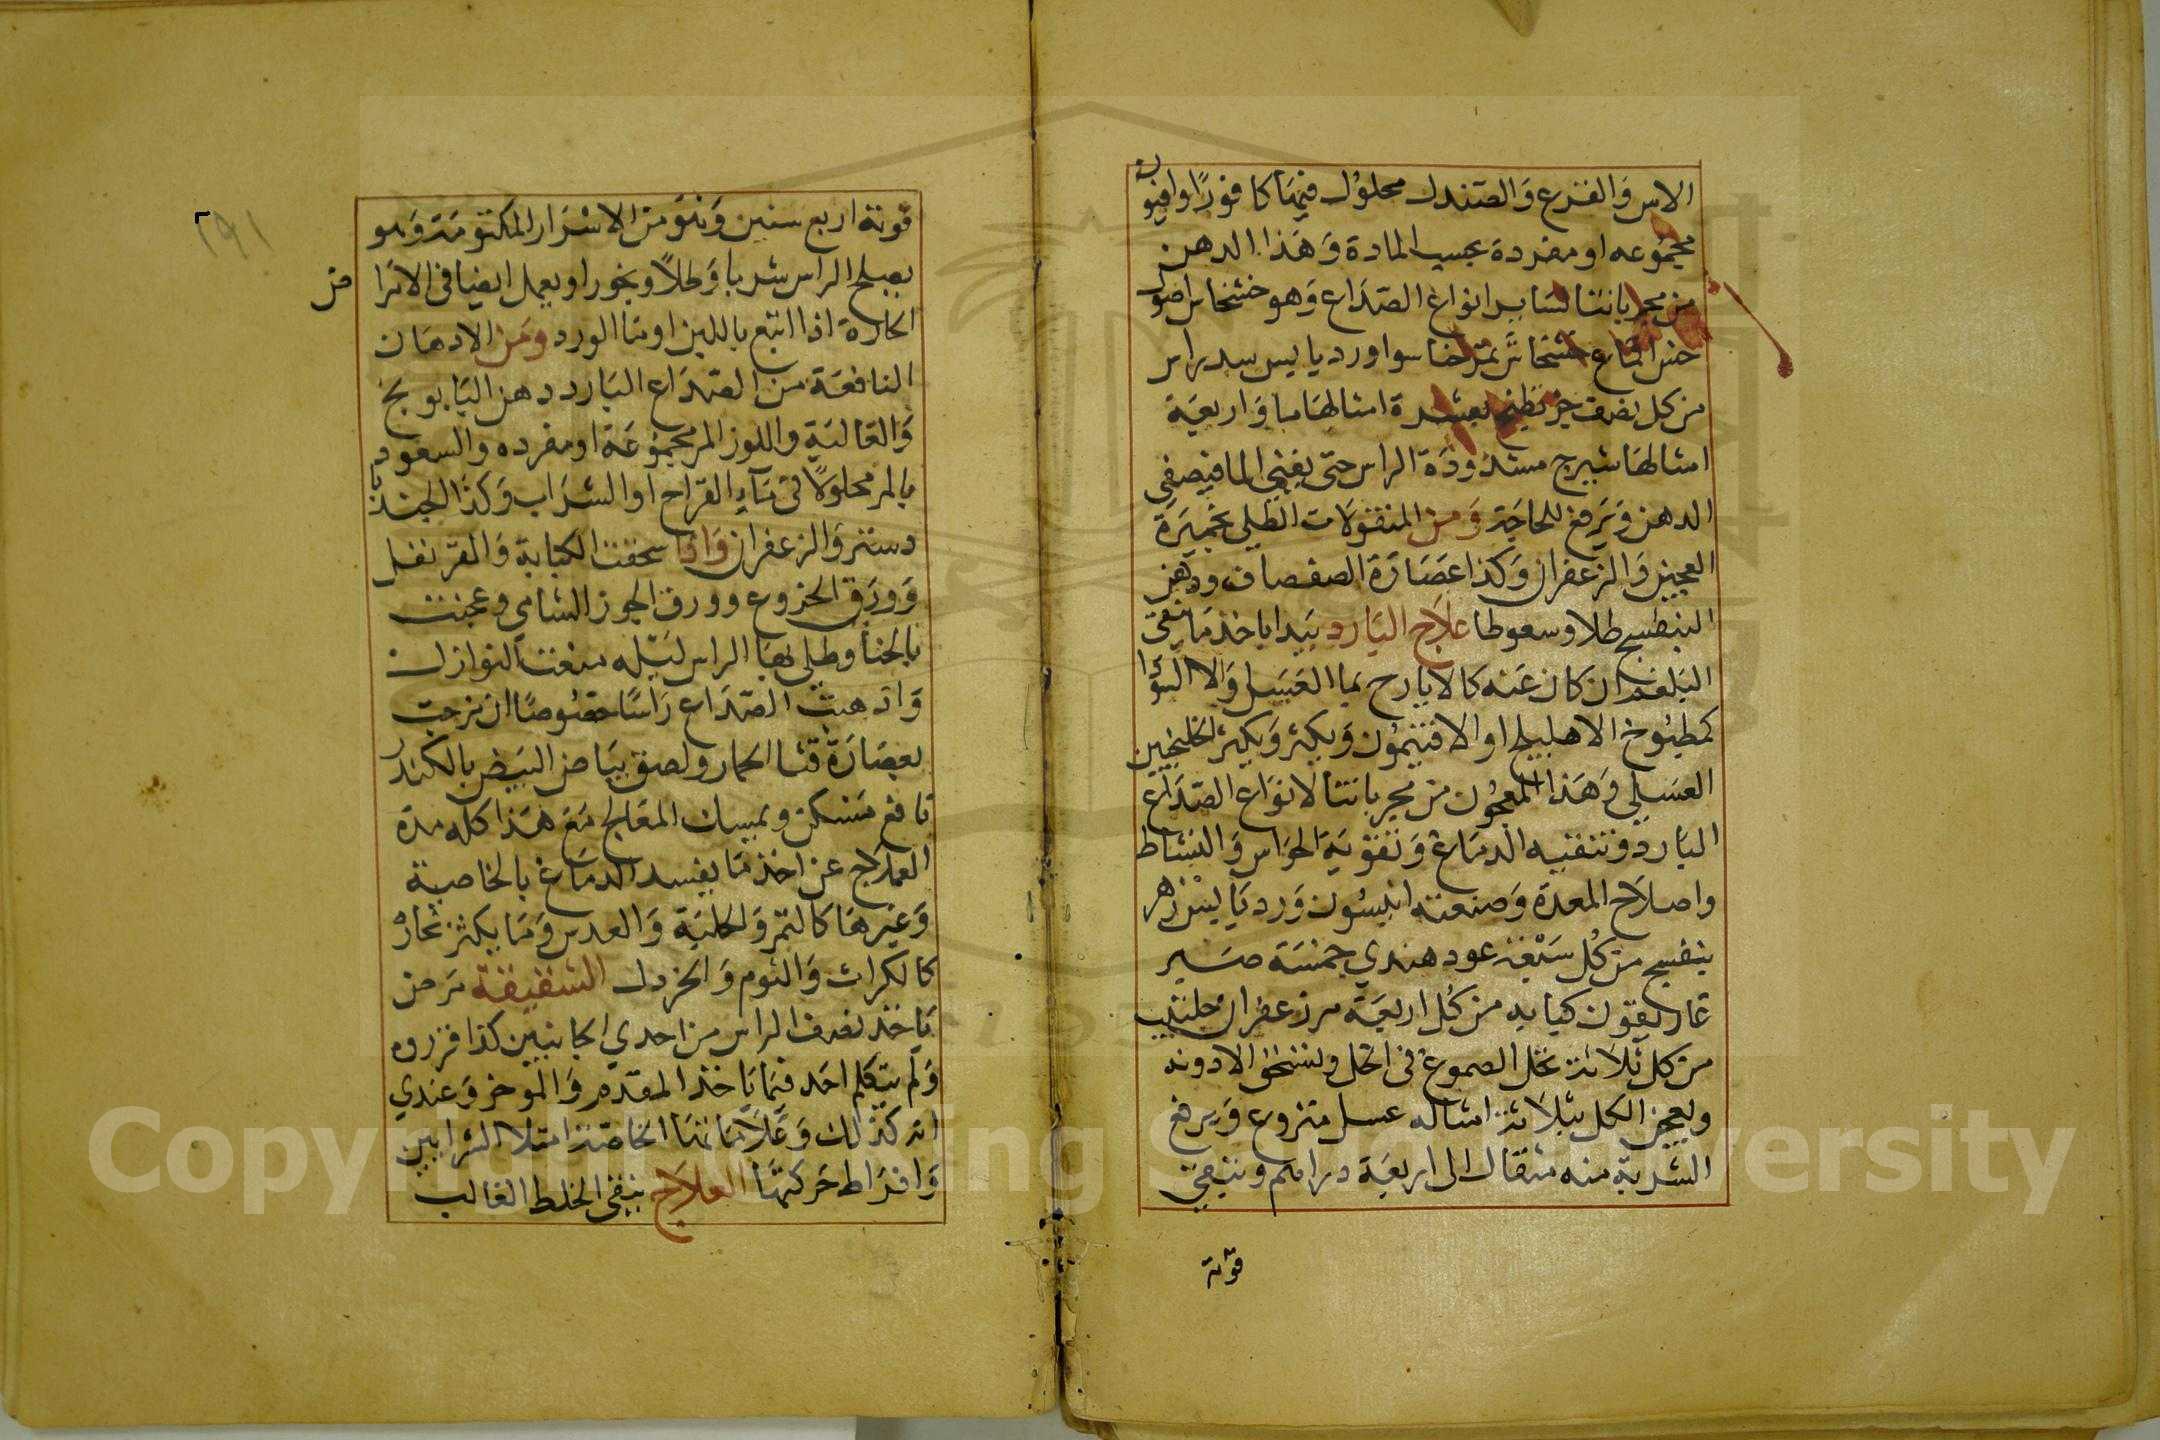 الاس والقرع والصندل محلول فيها كافورا وافيون
مجموعه او مفردة بحسب المادة وهذا الدهن
من مجرباتنا لساير انواع الصداع وهو خشخاش اصول
خس اقماع خشخاش بمر خنا سوا ورد يابس سدر اس
من كل نصف جز تطبخ بعشرة امثالها ما واربعة
امثالها شيرج مسدودة الراس حتى يفني الما فيصفي
الدهن ويرفع للحاجة ومن المنقولات الطلي بخميرة
العجين والزعفران وكذا عصارة الصفصاف ودهن
البنفسج طلا وسعوطا علاج البارد يبدا ياخذ ما ينقي
البلغم ان كان عنه كالايارج بما العسل والا السودا
كمطبوخ الاهليلج او الافتيمون ويكثر ويكثر الخلنجبين
العسلي وهذا المعجون من مجرباتنا لانواع الصداع
البارد وتنقيه الدماغ وتقوية الحواس والنشاط
واصلاح المعدة وصنعته انيسون ورد يابس زهر
بنفسج من كل سبعة عود هندي خمسة صبر
غاريقون كبابه من كل اربعة مر زعفران حلتيت
من كل ثلاثة تحل الصموغ في الخل وتسحق الادويه
ويعجن الكل بثلاثة امثاله عسل منزوع ويرفع
الشربة منه مثقال الى اربعة دراهم وتبقي
قوته
٢٩١
قوته اربع سنين وهو من الاسرار المكتومة وهو
يصلح الراس شربا وطلاً وبخورا ويعمل ايضا في الامرا
ض
الحارة اذا اتبع باللبن او ما الورد ومن الادهان
النافعة من الصداع البارد دهن البابونج
والغالية واللوز المر مجموعة او مفرده والسعود
بالمر محلولاً في ماء القراح او الشراب وكذا الجند با
دستر والزعفران واذا سحقت الكبابة والقرنفل
وورق الخروع وورق الجوز الشامي وعجنت
بالحنا وطلي بها الراس ليله منعت النوازل
واذهبت الصداع راسا خصوصا ان مزجت
بعصارة قثا الحمار ولصق بياض البيض بالكندر
نافع مسكن ويمسك المعالج مع هذا كله مدة
العلاج عن اخذ ما يفسد الدماغ بالخاصية
وغيرها كالتمر والحلبة والعدس وما يكثر بخاره
كالكراث والثوم والخردل الشقيقة مرض
ياخذ نصف الراس من احدي الجانبين كذا قرروه
ولم يتكلم احد فيما ياخذ المقدم والموخر وعندي
انه كذلك وعلاماتها الخاصة امتلا الشرايين
وافراط حركتها العلاج ينقي الخلط الغالب
Copyright © King Saud University